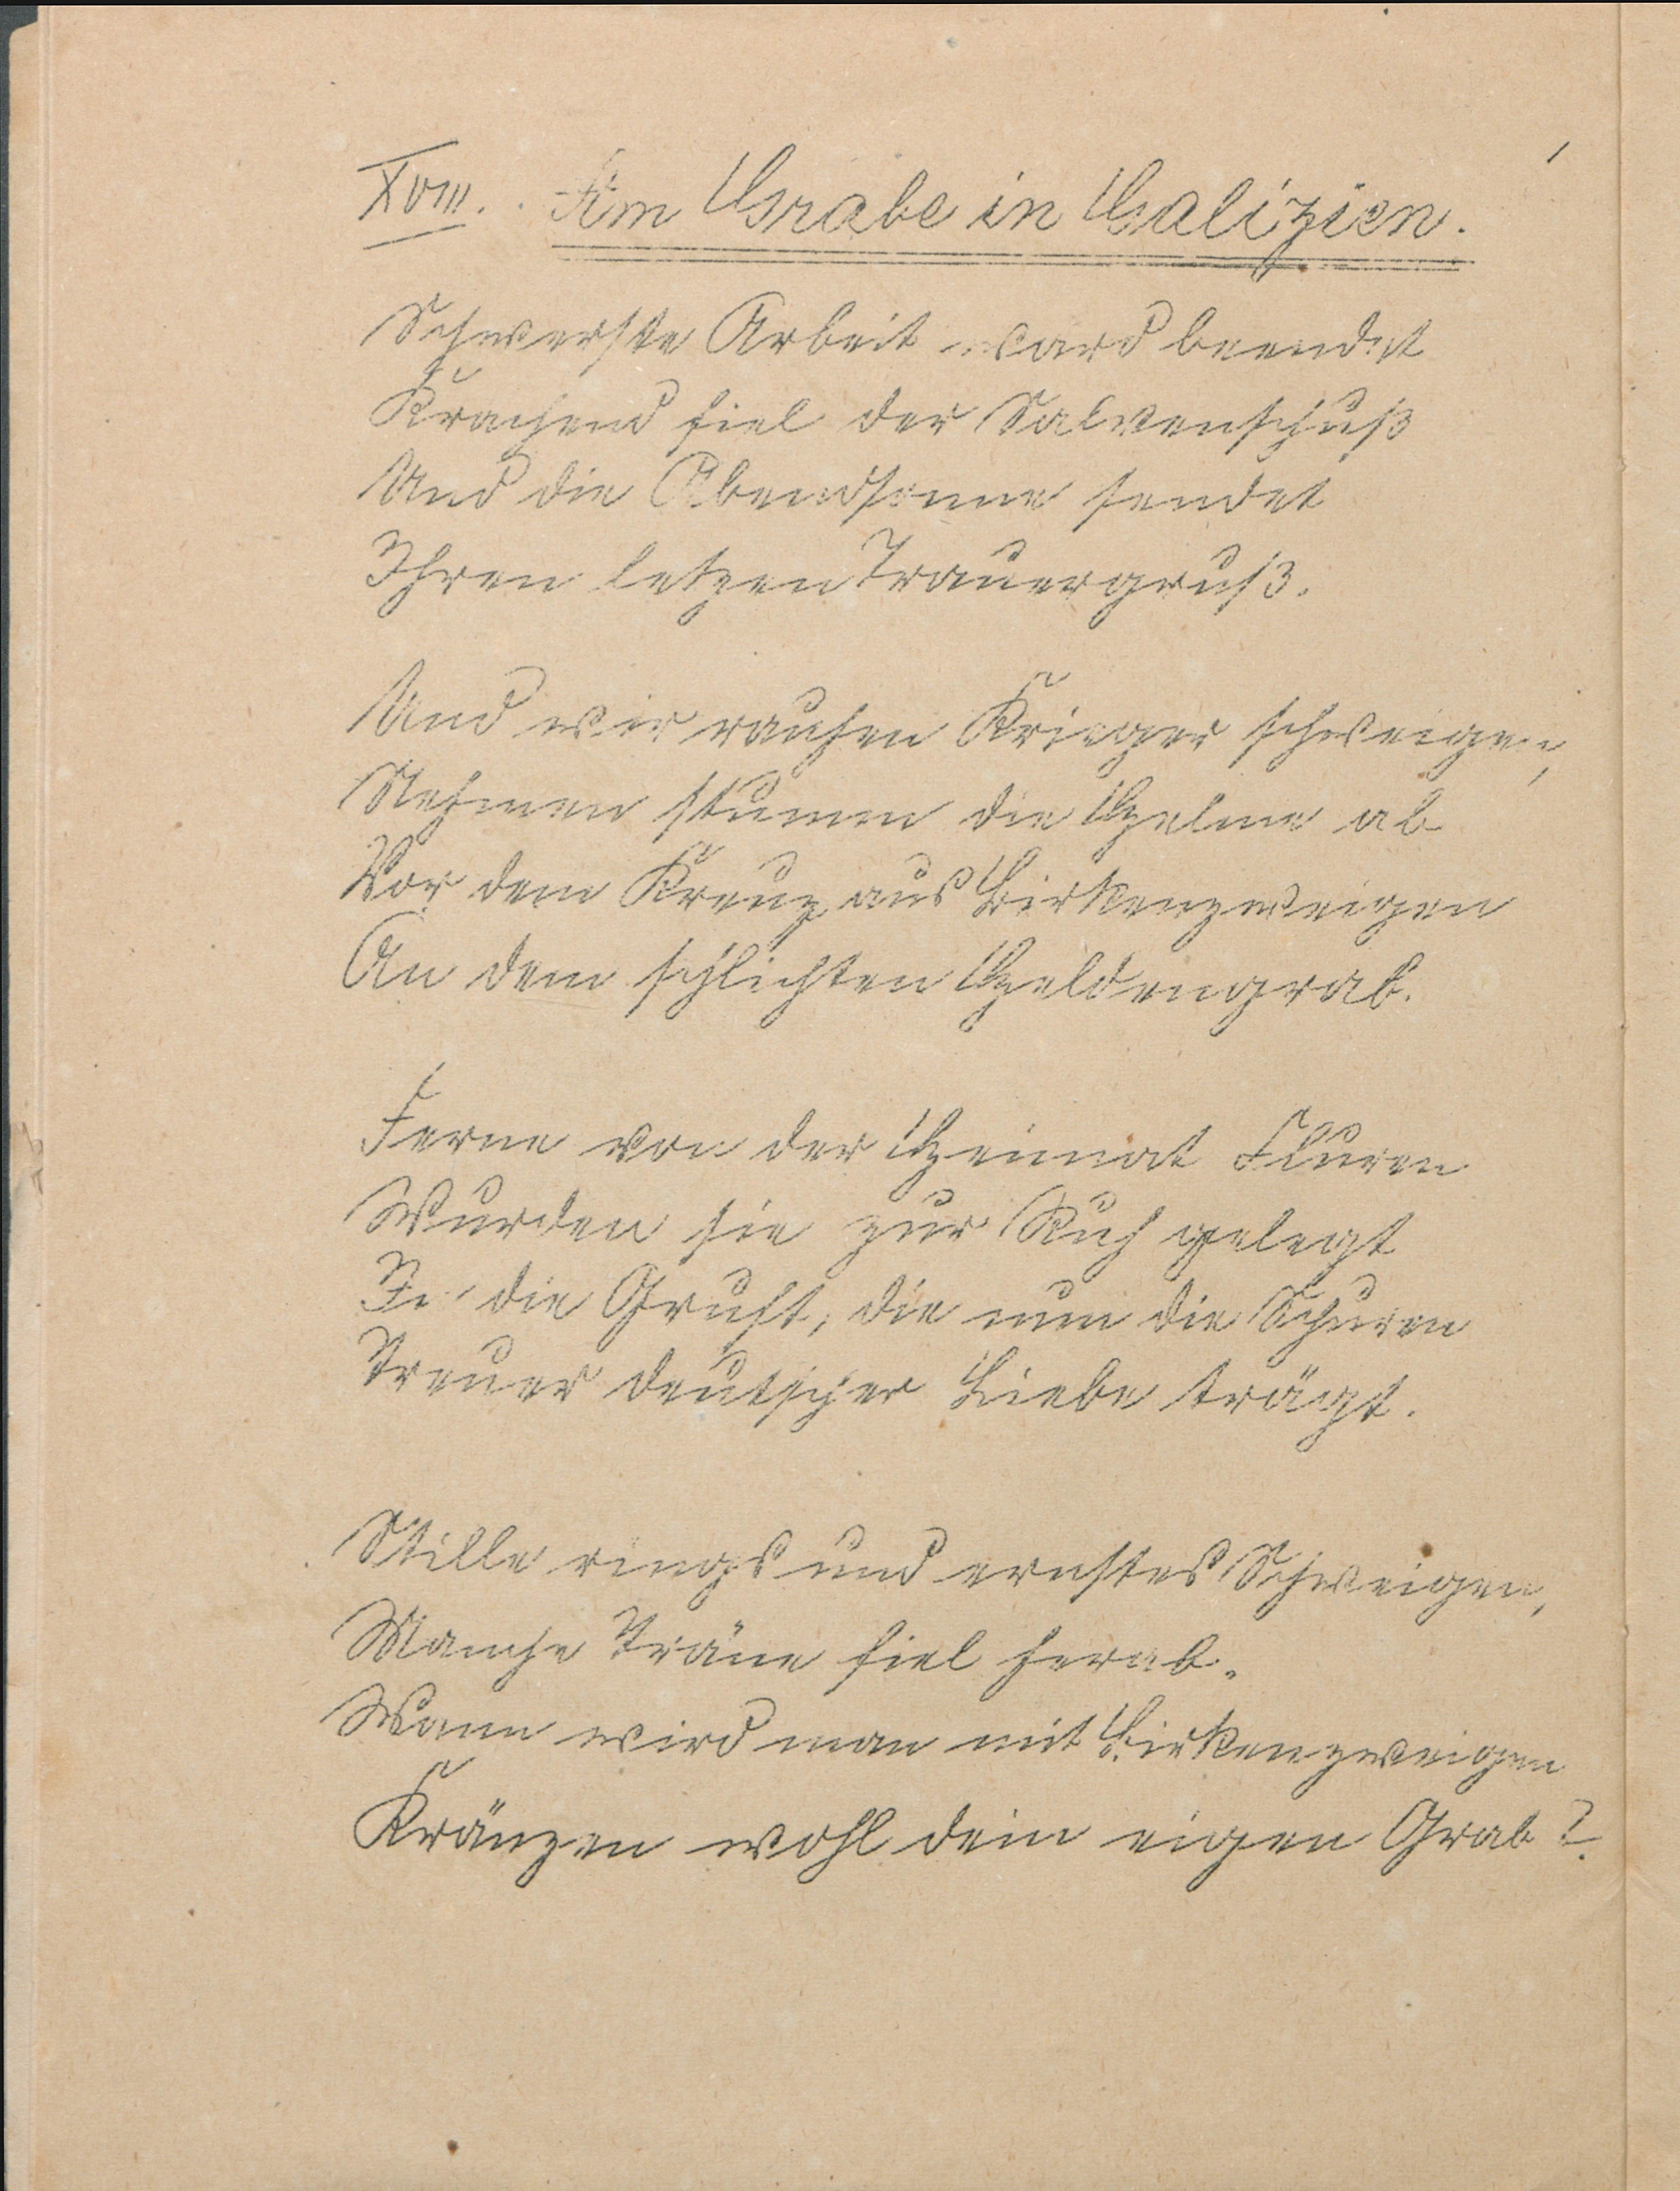 XVIII. Am Grabe in Galizien.
Schwerste Arbeit ward beendet
Krachend fiel der Salvenschuß
Und die Abendsonne sendet
Ihren letzen Trauergruß.
Und wir rauhen Krieger schweigen,
Nehmen stumm die Helme ab
Vor dem Kreuz aus Birkenzweigen
An dem schlichten Heldengrab.
Ferne von der Heimat Fluren
Wurden sie zur Ruh gelegt
In die Gruft, die nun die Spuren
Treuer deutscher Liebe trägt.
Stille rings und ernstes Schweigen,
Manche Träne fiel herab.
Wann wird man mit Birkenzweigen
Kränzen wohl dein eigen Grab?